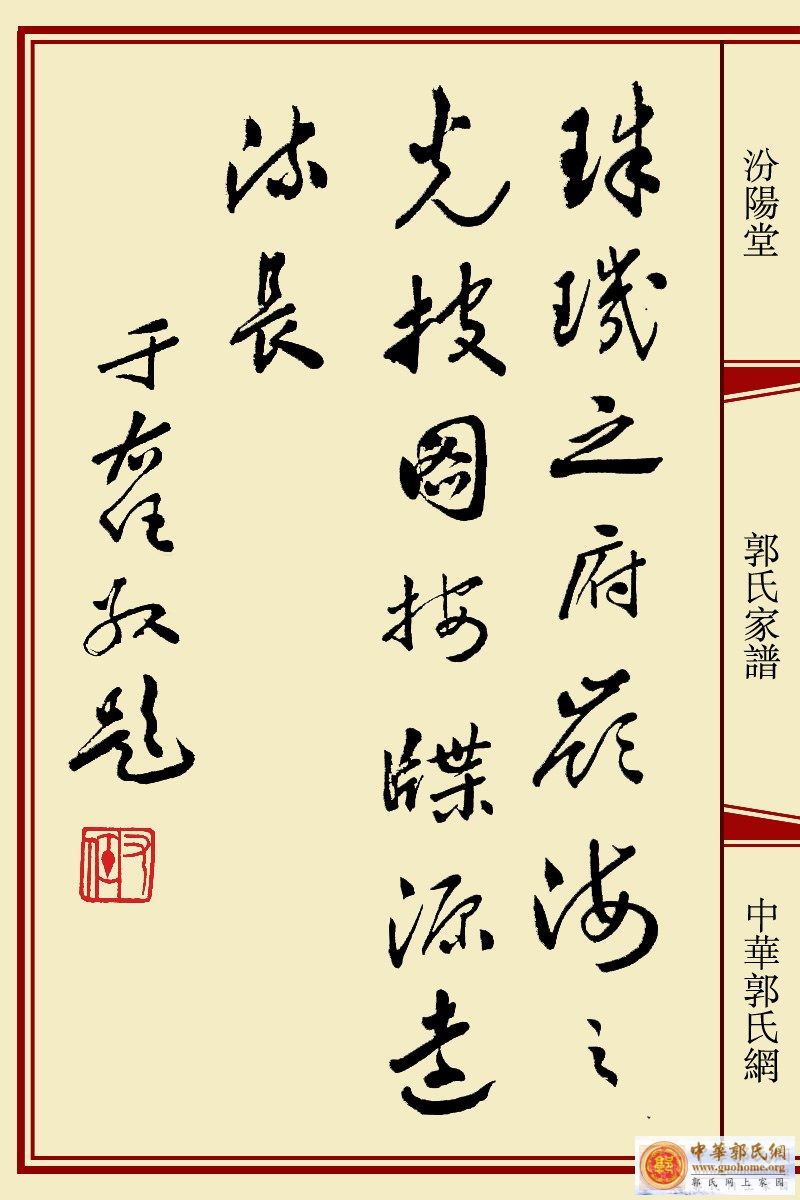 汾陽堂
郭氏家譜
中華郭氏網
珠璣之府嶺海之
光披圖按牒源遠
流長
于右任敬題
右任
中華郭氏網
www.guohome.org
郭氏网上家园